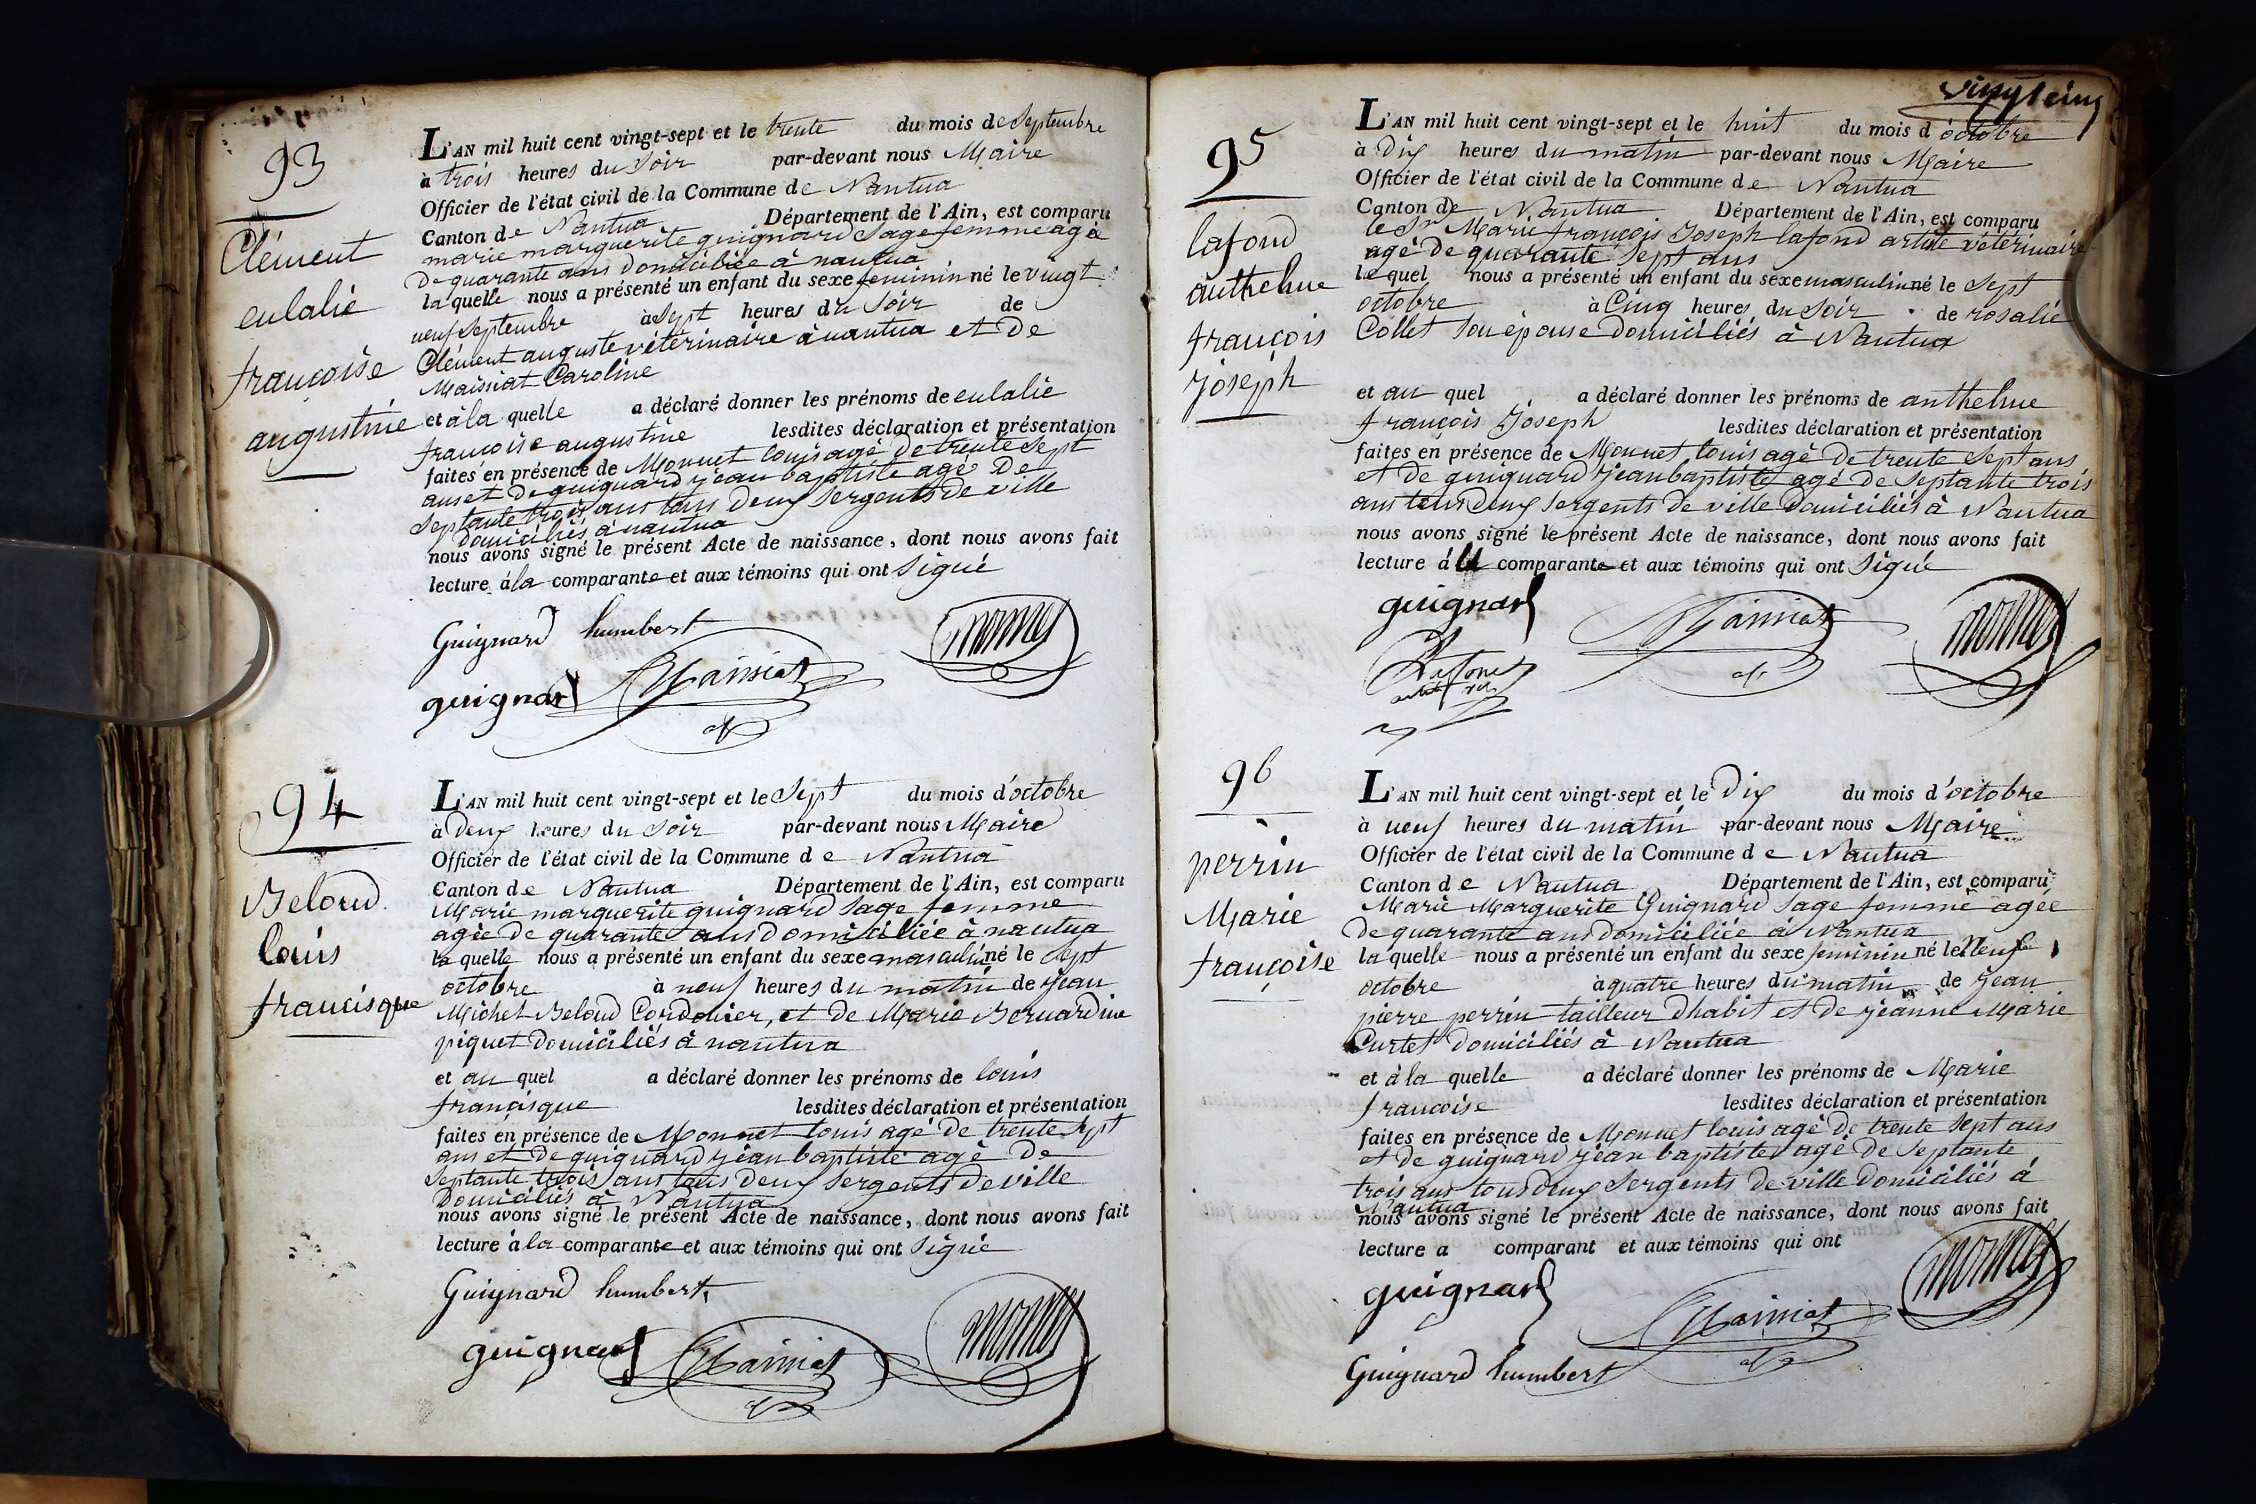 93
Clément
eulalie
françoise
augustine
L'AN mil huit cent vingt-sept et le trente du mois de Septembre
à trois heures du Soir par-devant nous Maire
Officier de l'état civil de la Commune de Nantua
Canton de Nantua Département de l'Ain, est comparu
marie marguerite guignard Sage femme agée
de quarante ans domiciliée à nantua
la quelle nous a présenté un enfant du sexe feminin né le vingt
neuf Septembre à Sept heures du Soir de
Clément auguste véterinaire à nantua et de
Maissiat Caroline
et à la quelle a déclaré donner les prénoms de eulalie
francoise augustine lesdites déclaration et présentation
faites en présence de Monnet louis agé de trente Sept
ans et de guignard jean baptiste agé de
Septante trois ans tous deux Sergents de ville
Domiciliés à nantua
nous avons signé le présent Acte de naissance, dont nous avons fait
lecture à la comparante et aux témoins qui ont Signé
Guignard humbert
monnet
guignard Maissiat
94
Beloud
louis
francisque
L'AN mil huit cent vingt-sept et le Sept du mois d'octobre
à Deux heures du Soir par-devant nous Maire
Officier de l'état civil de la Commune de Nantua
Canton de Nantua Département de l'Ain, est comparu
Marie marguerite guignard Sage femme
agée de quarante ans domiciliée à nantua
la quelle nous a présenté un enfant du sexe masculin né le Sept
octobre à neuf heures du matin de jean
Michel Beloud Cordonier, et de Marie Bernardine
piquet domiciliés à nantua
et au quel a déclaré donner les prénoms de louis
françisque lesdites déclaration et présentation
faites en présence de Monnet louis agé de trente Sept
ans et de guignard jean baptiste agé de
Septante trois ans tous deux Sergents de ville
Domiciliés à Nantua
nous avons signé le présent Acte de naissance, dont nous avons fait
lecture à la comparante et aux témoins qui ont Signé
Guignard humbert
guignard Maissiat monnet
vingt cinq
95
lafond
anthelme
françois
joseph
L'AN mil huit cent vingt-sept et le huit du mois d'octobre
à Dix heures du matin par-devant nous Maire
Officier de l'état civil de la Commune de Nantua
Canton de Nantua Département de l'Ain, est comparu
le Sr Marie françois Joseph lafond artiste véterinaire
agé de quarante Sept ans
le quel nous a présenté un enfant du sexe masculin né le Sept
octobre à Cinq heures du Soir de rosalie
Collet Son épouse Domiciliés à Nantua
et au quel a déclaré donner les prénoms de anthelme
françois Joseph lesdites déclaration et présentation
faites en présence de Monnet louis agé de trente Sept ans
et de guignard jean baptiste agé de Septante trois
ans tous deux Sergents de ville Domiciliés à Nantua
nous avons signé le présent Acte de naissance, dont nous avons fait
lecture à comparante et aux témoins qui ont Signé
guignard Maissiat monnet
Lafond
96
perrin
Marie
françoise
L'AN mil huit cent vingt-sept et le Dix du mois d'octobre
à neuf heures du matin par-devant nous Maire
Officier de l'état civil de la Commune de Nantua
Canton de Nantua Département de l'Ain, est comparu
Marie Marguerite Guignard Sage femme agée
de quarante ans domiciliée à Nantua
la quelle nous a présenté un enfant du sexe feminin né le Neuf
octobre à quatre heures du matin de jean
pierre perrin tailleur Dhabit et de jeanne Marie
Curtet domiciliés à Nantua
et à la quelle a déclaré donner les prénoms de Marie
francoise lesdites déclaration et présentation
faites en présence de Monnet louis agé de trente Sept ans
et de guignard jean baptiste agé de Septante
trois ans tous deux Sergents de ville Domiciliés à
Nantua
nous avons signé le présent Acte de naissance, dont nous avons fait
lecture a comparant et aux témoins qui ont
guignard Maissiat monnet
Guignard humbert